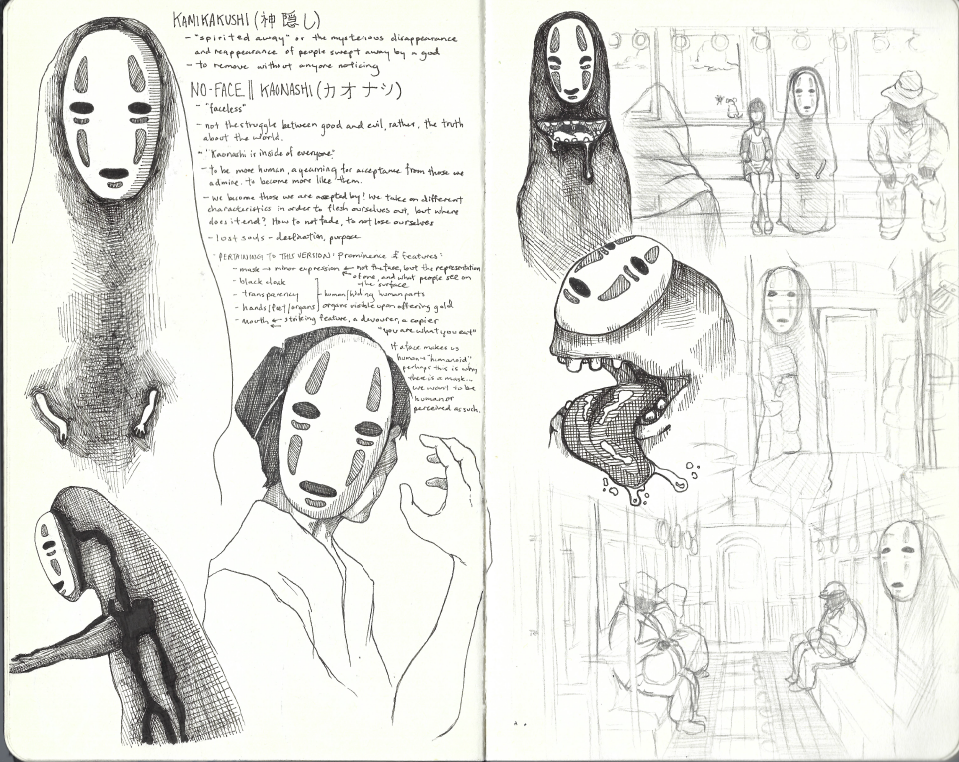 KAMIKAKUSHI (神隠し)
- "spirited away" or the mysterious disappearance
and reappearance of people swept away by a god
- to remove without anyone noticing
NO-FACE || KAONASHI (カオナシ)
- "faceless"
- not the struggle between good and evil, rather, the truth
about the world.
- "Kaonashi is inside of everyone"
- to be more human, a yearning for acceptance from those we
admire. to become more like them.
- we become those we are accepted by! We take on different
characteristics in order to flesh ourselves out, but where
does it end? How to not fade, to not lose ourselves
- lost souls - destination, purpose
PERTAINING TO THIS VERSION: Prominence of features:
- mask → minor expression ← not the face, but the representation
of one, and what people see on
the surface
- black cloak
- transparency
- hands/feet/organs
human/hiding human parts
organs visible upon offering gold
- Mouth ← striking feature, a devourer, a copier
"You are what you eat"
If a face makes us
human → "humanoid"
perhaps this is why
there is a mask...
we want to be
human or
perceived as such.